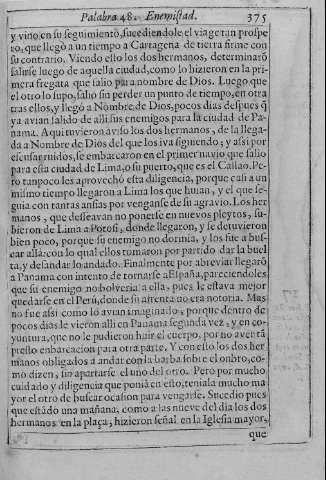 Palabra 48. Enemistad. 375
y vino en su seguimiento, sucediendole el viage tan prospe
ro, que llegò a un tiempo a Cartagena de tierra firme con
su contrario. Viendo esto los dos hermanos, determinarõ
salirse luego de aquella ciudad, como lo hizieron en la pri
mera fregata que salio para nombre de Dios. Luego que
el otro lo supo, salio sin perder un punto de tiempo, en otra
tras ellos, y llegò a Nombre de Dios, pocos dias despues q̃
ya avian salido de alli sus enemigos para la ciudad de Pa-
nama. Aqui tuvieron aviso los dos hermanos, de la llega-
da a Nombre de Dios del que los iva siguiendo; y assi por
escusar ruidos, se embarcaron en el primer navio que salio
para esta ciudad de Lima, o su puerto, que es el Callao. Pe
ro tampoco les aprovechò esta diligencia, porque casi a un
mismo tiempo llegaron a Lima los que huian, y el que se-
guia con tantas ansias por vengarse de su agravio. Los her
manos, que desseavan no ponerse en nuevos pleytos, su-
bieron de Lima a Potosi, donde llegaron, y se detuvieron
bien poco, porque su enemigo no dormia, y los fue a bus-
car allà: con lo qual ellos tomaron por partido dar la buel-
ta, y desandar lo andado. Finalmente por abreviar llegarõ
a Panama con intento de tornarse a España, pareciendoles
que su enemigo no bolveria a ella, pues le estava mejor
quedarse en el Perù, donde su afrenta no era notoria. Mas
no fue assi como lo avian imaginado; porque dentro de
pocos dias le vieron alli en Panama segunda vez, y en co-
yuntura, que no le pudieron huir el cuerpo, por no averta
presto embarcacion para otra parte. Y con esto los dos her
manos obligados a andar con la barba sobre el onbro, co-
mo dizen, sin apartarse el uno del otro. Pero por mucho
cuidado y diligencia que ponia en esto, teniala mucho ma
yor el otro de buscar ocasion para vengarse. Sucedio pues
que estãdo una mañana, como a las nueve del dia los dos
hermanos en la plaça, hizieron señal en la Iglesia mayor,
que